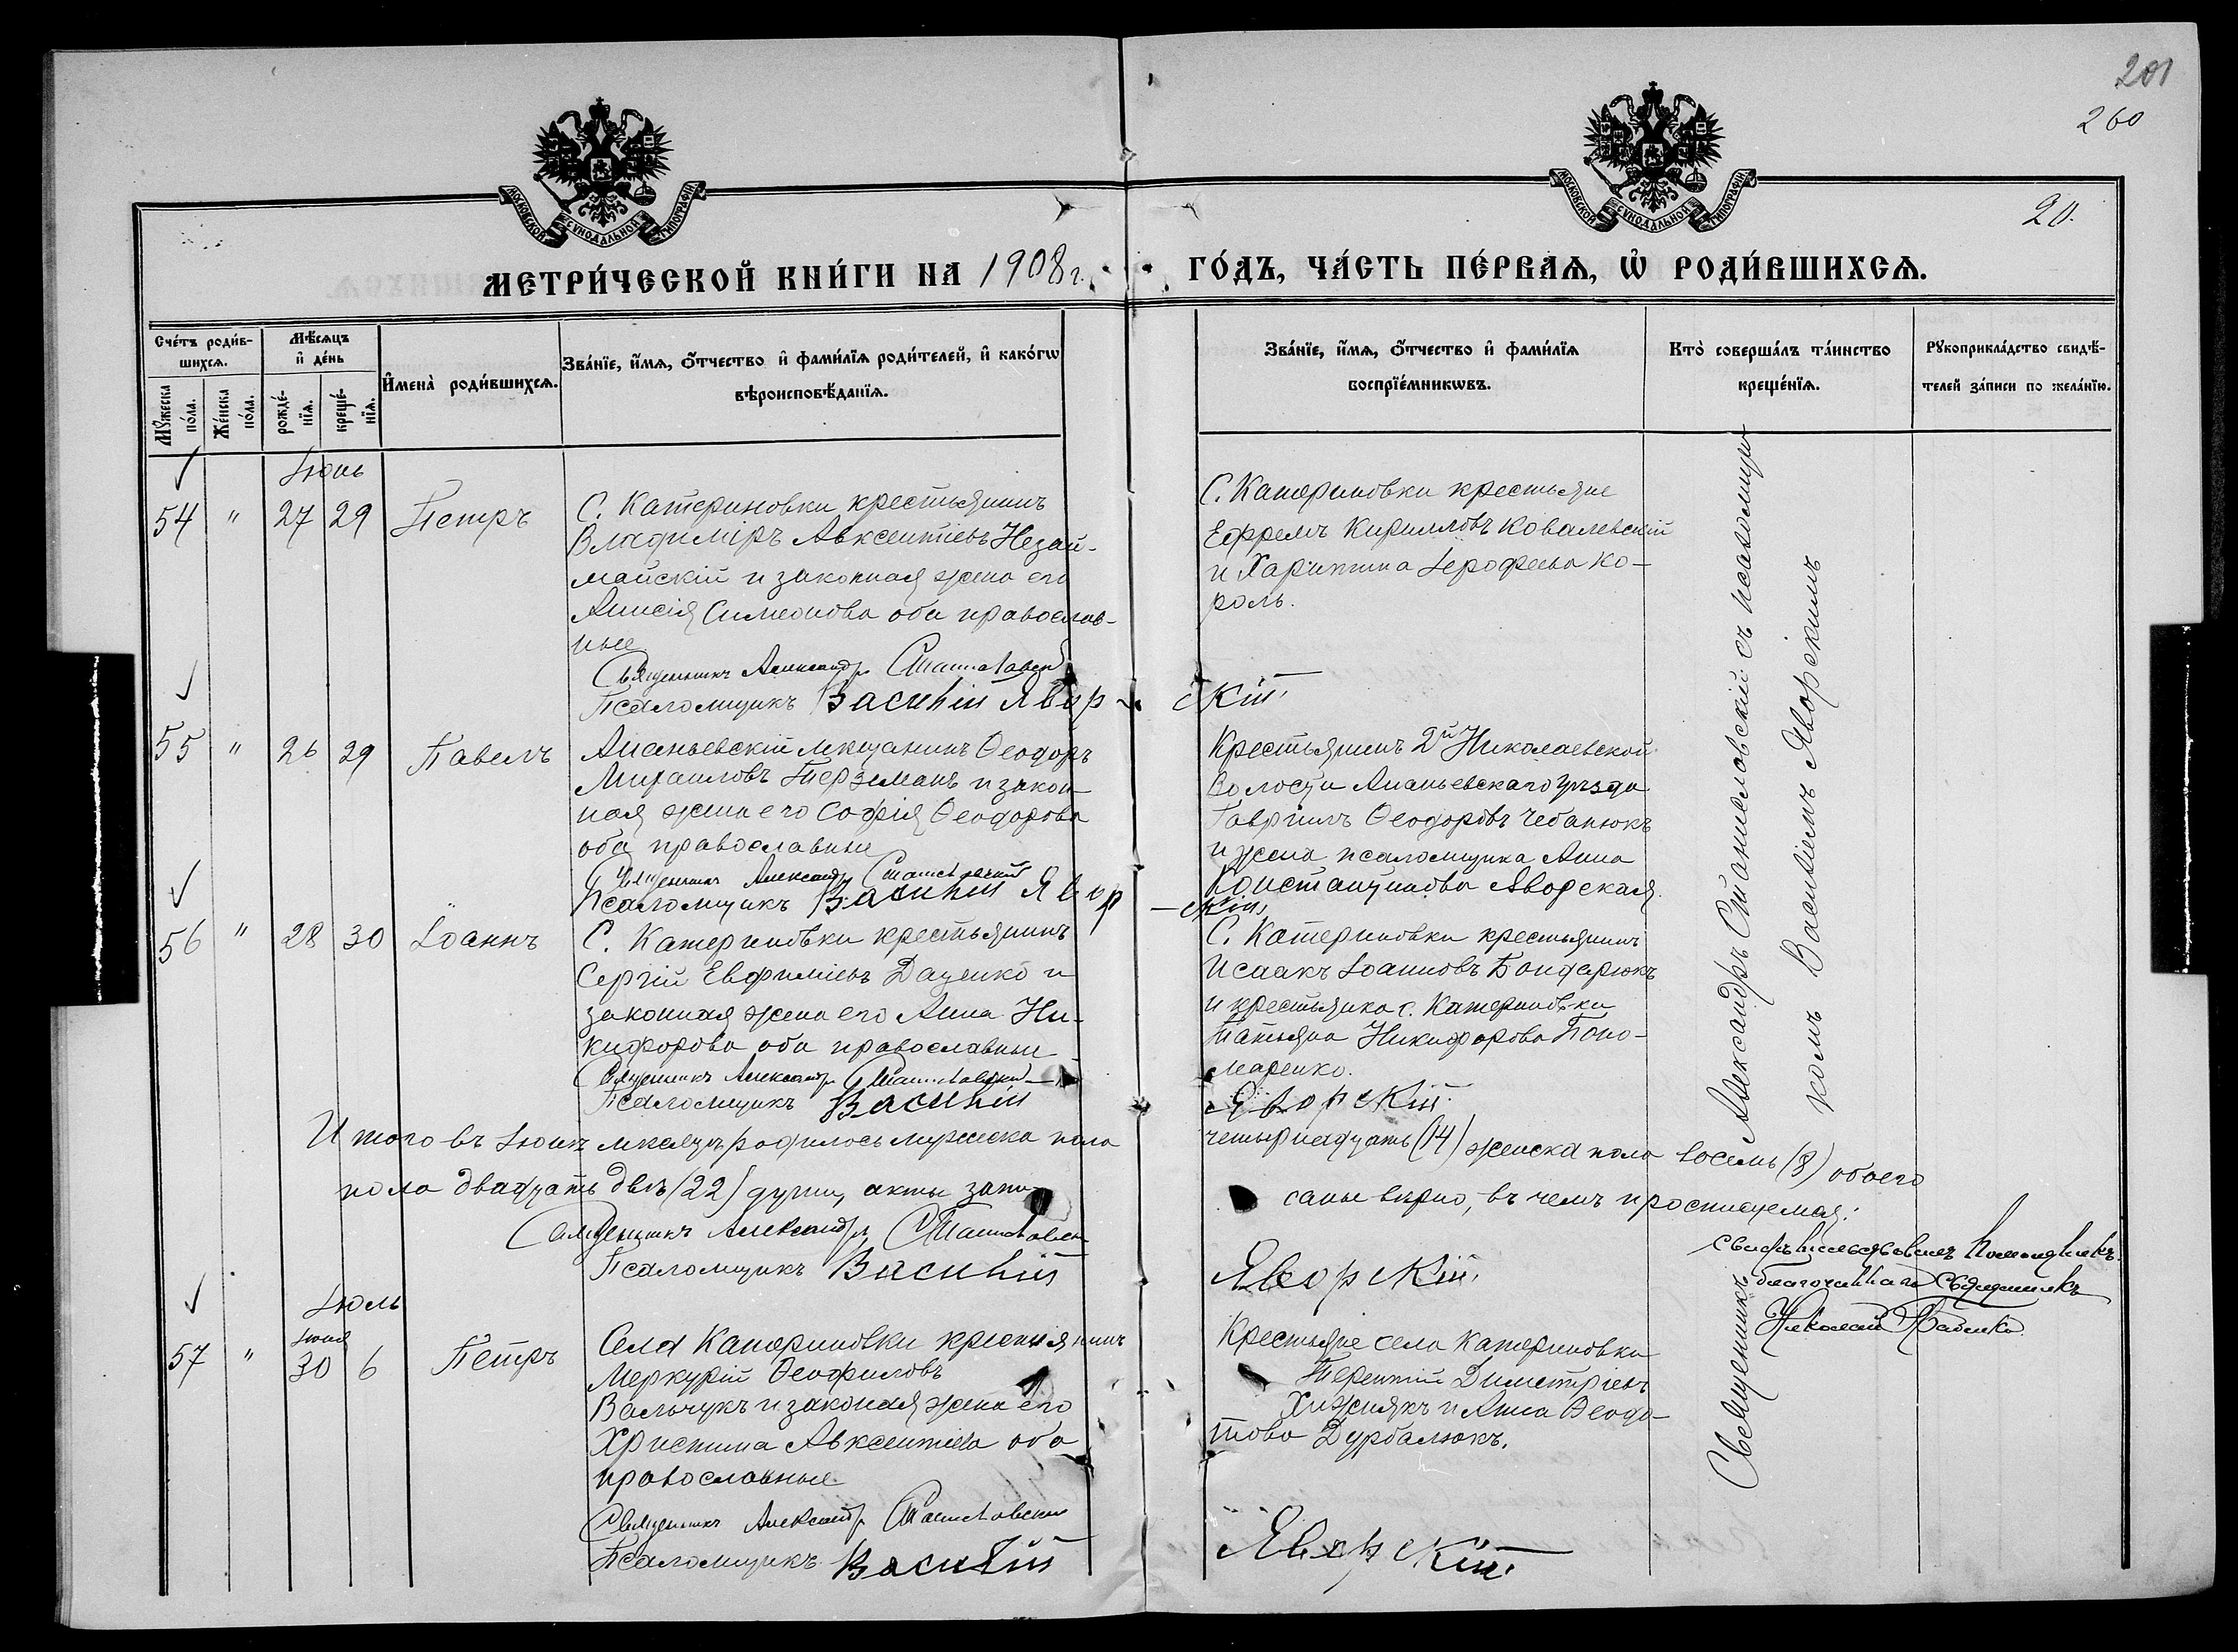 201
260
20.
МОСКОВСКОЙ СѴНОДАЛЬНОЙ ТИПОГРАФІИ
МОСКОВСКОЙ СѴНОДАЛЬНОЙ ТИПОГРАФІИ
МЕТРИ́ЧЕСКОЙ КНИ́ГИ НА 1908 г.
ГО́ДЪ, ЧА́СТЬ ПЕ́РВАѦ, Ѡ҆ РОДИ́ВШИХСѦ.
Сче́тъ роди́в-
шихся.
Мѣ́сяцъ
и҆ де́нь
Мꙋ́жеска по́ла.
Же́нска по́ла.
рожде́-
нїя.
креще́-
нїя.
И҆мена̀ роди́вшихся.
Зва́нїе, и҆́мя, ѻ҆́тчество и҆ фами́лїя роди́телей, и҆ како́гѡ
вѣроисповѣ́данїя.
Зва́нїе, и҆́мя, ѻ҆́тчество и҆ фами́лїя
воспрїе́мникѡвъ.
Кто̀ соверша́лъ та́инство
креще́нїя.
Рꙋкоприкла́дство свидѣ́-
телей за́писи по жела́нїю.
Іюнь
54 " 27 29 Петръ
С. Катериновки крестьянинъ
Владиміръ Авксентіевъ Незай-
майскій и законная жена его
Анисія Симеонова оба православ-
ные
Священникъ Александръ Станиславскій
Псаломщикъ Василій Явор-
скій.
С. Катериновки крестьяне
Ефремъ Кирилловъ Ковалевскій
и Харитина Іерофеева Ко-
роль.
55 " 26 29 Павелъ
Ананьевскій мѣщанинъ Ѳеодоръ
Михаиловъ Терземанъ и закон-
ная жена его Софія Ѳеодорова
оба православные
Священникъ Александръ Станиславскій
Псаломщикъ Василій Явор-
скій.
Крестьянинъ 2й Николаевской
волости Ананьевскаго уѣзда
Гавріилъ Ѳеодоровъ Чебанюкъ
и жена псаломщика Анна
Константинова Яворская.
56 " 28 30 Іоаннъ
С. Катериновки крестьянинъ
Сергій Евфиміевъ Даценко и
законная жена его Анна Ни-
кифорова оба православные
Священникъ Александръ Станиславскій
Псаломщикъ Василій
Яворскій.
С. Катериновки крестьянинъ
Исаакъ Іоанновъ Бондарюкъ
и крестьянка с. Катериновки
Татьяна Никифорова Поно-
маренко.
Итого въ Іюнѣ мѣсяцѣ родилось мужеска пола четырнадцать (14) женска пола восемь (8) обоего
пола двадцать двѣ (22) души, акты запи- саны вѣрно, въ чемъ и росписуемся:
Священникъ Александръ Станиславскій
Псаломщикъ Василій Яворскій.
благочиннаго Священникъ
Николай
Іюль
57 " Іюня 30 6 Петръ
Села Катериновки крестьянинъ
Меркурій Ѳеофиловъ
Вальчукъ и законная жена его
Христина Авксентіева оба
православные.
Священникъ Александръ Станиславскій
Псаломщикъ Василій
Яворскій.
Крестьяне села Катериновки
Терентій Димитріевъ
Хижнякъ и Анна Ѳеодо-
това Дурбалюкъ.
Священникъ Александръ Станиславскій съ псаломщи-
комъ Василіемъ Яворскимъ